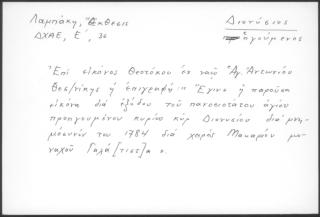 Λαμπάκη, Ἔκθεσις
ΔΧΑΕ, Ε΄, 36
Διονύσιος
ἡγούμενος
Ἐπί εἰκόνος Θεοτόκου ἐν ναῷ Ἁγ. Ἀντωνίου
Θεσ/νίκης ἡ ἐπιγραφή: "Ἔγινε ἡ παροῦσα
εἰκόνα διά ἐξόδου τοῦ πανοσιοτάτου ἁγίου
προηγουμένου κυρίου κύρ Διονυσίου διά μνη-
μόσυνόν του 1784 διά χειρός Μακαρίου μο-
ναχοῦ Γαλά[τιστ]α ν.